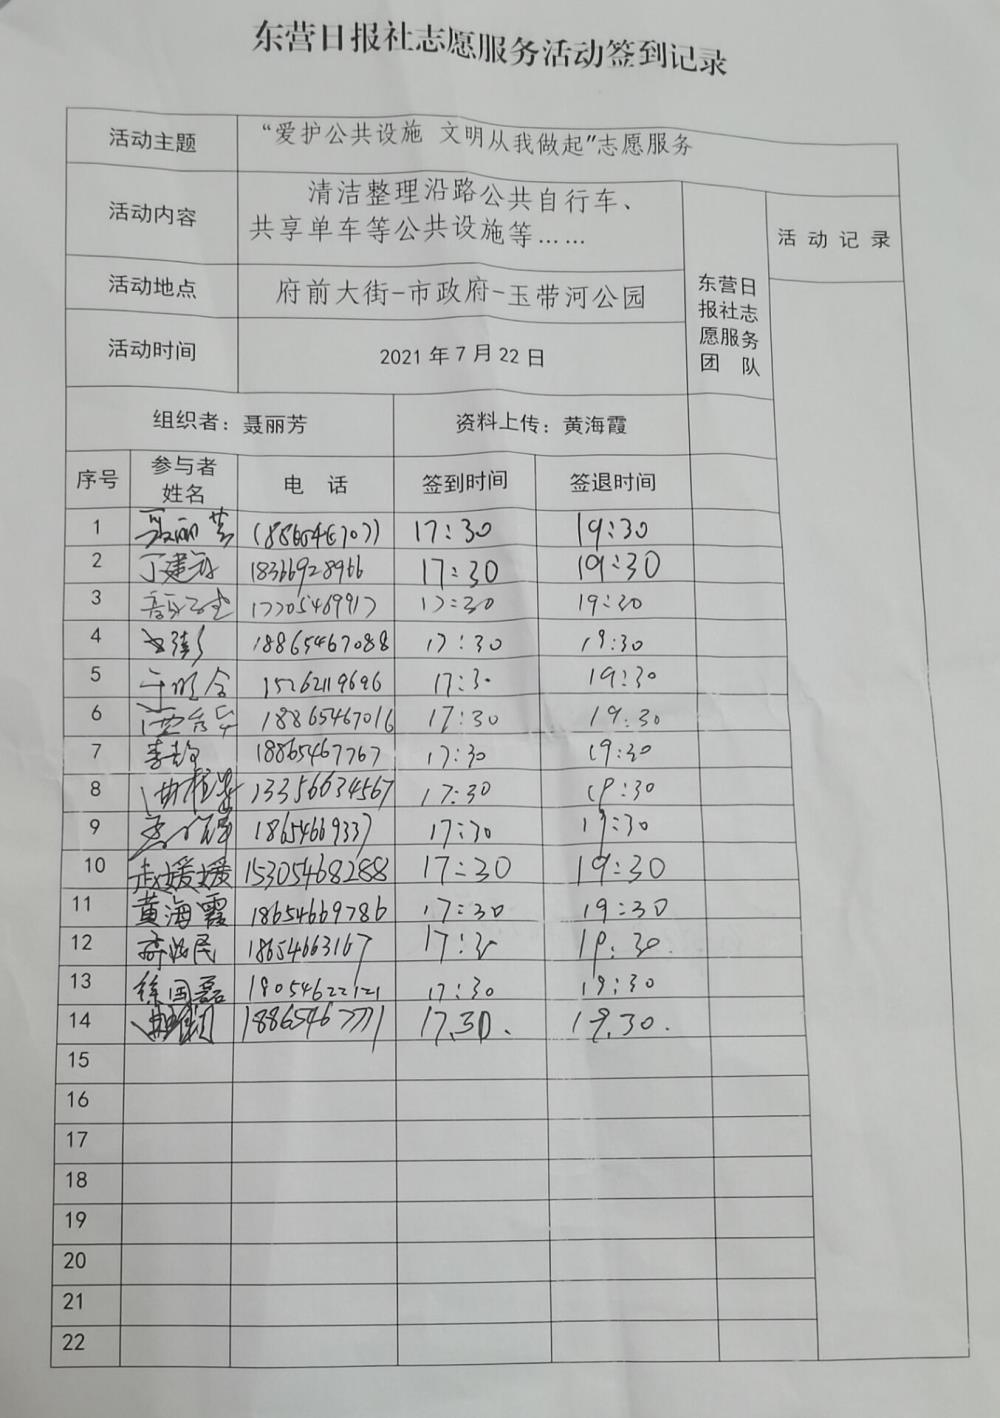 东营日报社志愿服务活动签到记录
活动主题 “爱护公共设施 文明从我做起”志愿服务
活动内容 清洁整理沿路公共自行车、
共享单车等公共设施等……
活动地点 府前大街-市政府-玉带河公园
活动时间 2021年7月22日
东营日
报社志
愿服务
团 队
活动记录
组织者：聂丽芳 资料上传：黄海霞
序号 参与者
姓名 电 话 签到时间 签退时间
1 聂丽芳 17:30 19:30
2 18366928966 17:30 19:30
3 17705469917 17:30 19:30
4 18865467088 17:30 19:30
5 15262119696 17:30 19:30
6 18865467016 17:30 19:30
7 18865467767 17:30 19:30
8 13356634567 17:30 19:30
9 18654669337 17:30 19:30
10 赵媛媛 15305468288 17:30 19:30
11 黄海霞 18654669786 17:30 19:30
12 18654663167 17:30 19:30.
13 徐国磊 18054622121 17:30 19:30
14 18865467771 17.30. 19.30.
15
16
17
18
19
20
21
22